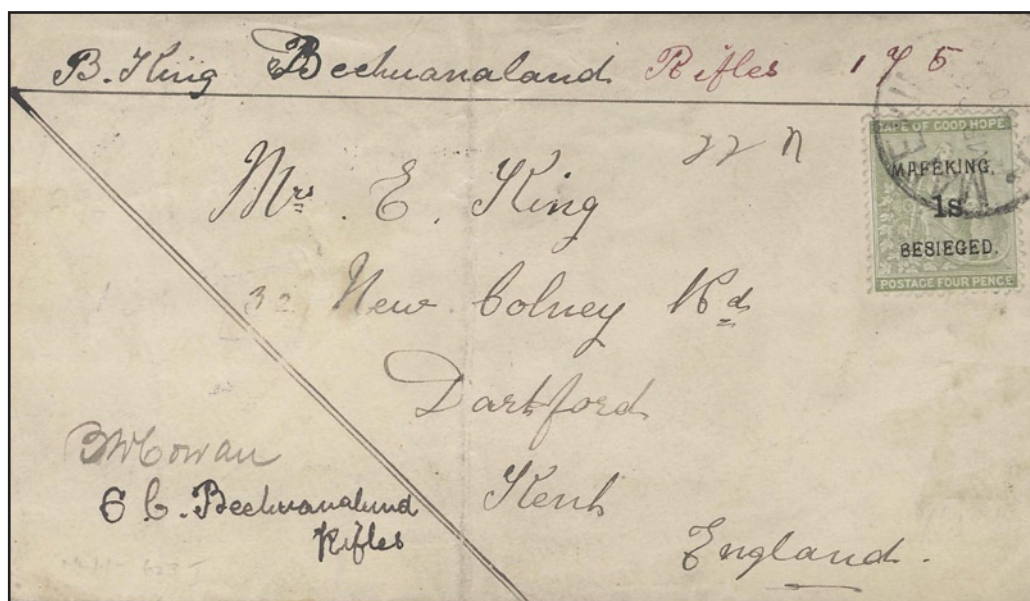 B. King Bechuanaland Rifles 175
22 n
CAPE OF GOOD HOPE
MAFEKING,
1s.
BESIEGED.
POSTAGE FOUR PENCE
Mrs. E. King
32 New Colney Rd
Dartford
Kent
England.
Cowan
Bechuanaland
Rifles